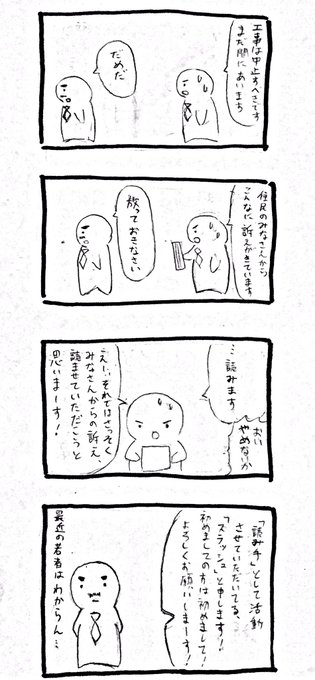 工事は中止すべきです
まだ間にあいまち
だめだ
住民のみなさんから
こんなに訴えがきています
放って
おきなさい
…読みます
おい
やめないか
えー、それではさっそく
みなさんからの訴え、
読ませていただこうと
思いまーす!
「読み手」として活動
させていただいてる、
「スラッシュ」と申します!
初めましての方は初めまして!
よろしくお願いしまーす!
最近の若者はわからん…